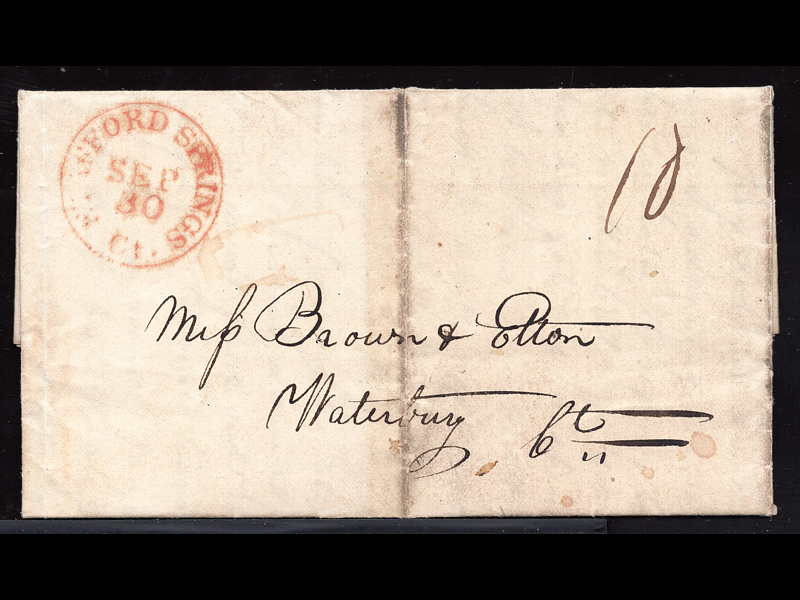 STAFFORD SPRINGS
SEP
30
Ct.
10
Mess Brown & Elton
Waterbury
Ct